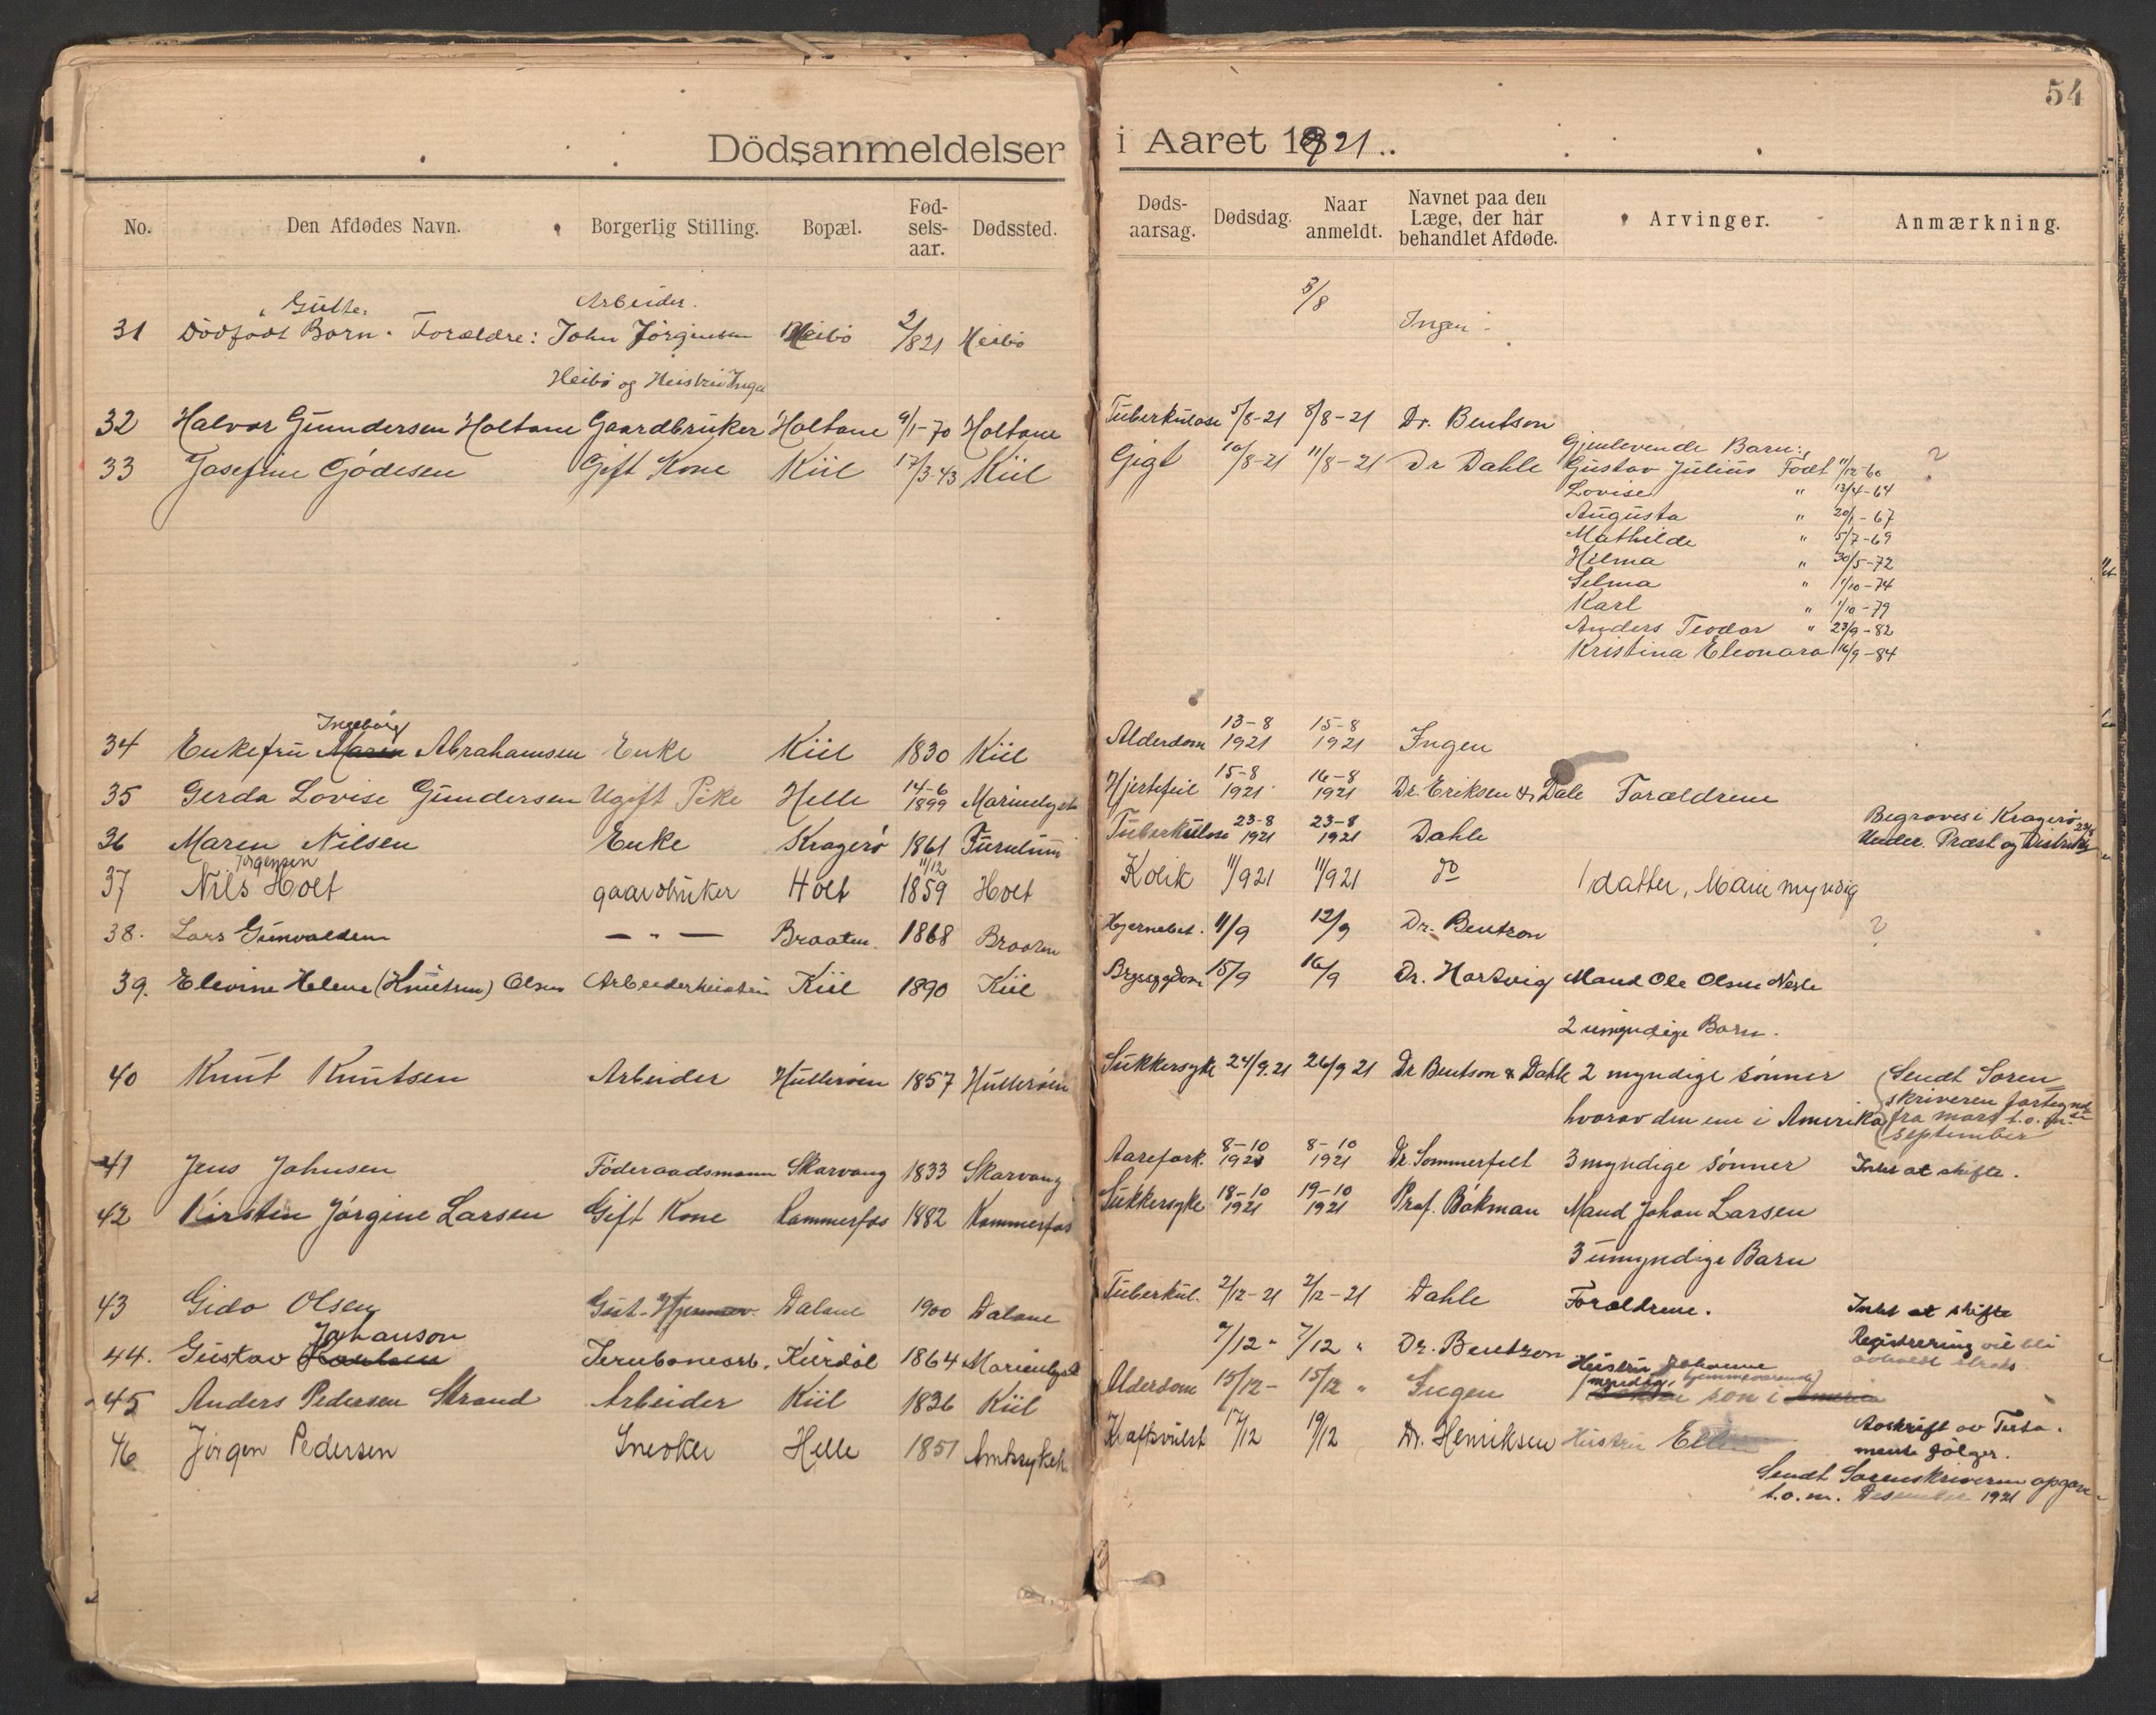 54
Dödsanmeldelser i Aaret 1921..
No. Den Afdødes Navn. Borgerlig Stilling. Bopæl. Fød-sels-aar. Dødssted. Døds-aarsag. Dødsdag. Naar anmeldt. Navnet paa den Læge, der har behandlet Afdøde. Arvinger. Anmærkning.
Gutte. Arbeider. 3/8
31 Dödfödt Barn. Forældre: John Jörginsen Heibö 2/8 21 Heibö Ingen
Heibö og Heistrü Inga
32 Halvor Gundersen Holtane Gaardbruker Holtane 9/1-70 Holtane Tuberkulose 5/8-21 8/8-21 Dr. Bentson
Gjenlevende Barn:
33 Josefine Gjödesen Gift Kone Kiil 17/3-43 Kiil Gigt 10/8-21 11/8-21 Dr Dahle Gustav Julius Född 11/12-60 ?
Lovise " 13/4-64
Augusta " 20/1-67
Mathilde " 5/7-69
Hilma " 30/5-72
Selma " 1/10-74
Karl " 1/10-79
Anders Teodor " 23/9-82
Kristina Eleonara 16/9-84
Ingeborg
34 Enkefru Maren Abrahamsen Enke Kiil 1830 Kiil Alderdom 13-8 1921 15-8 1921 Ingen
35 Gerda Lovise Gundersen Ugift Pike Helle 14-6 1899 Marienlyst Hjertefeil 15-8 1921 16-8 1921 Dr. Eriksen & Dale Forældrene
36 Maren Nilsen Enke Kragerö 1861 Furulund Tuberkulose 23-8 1921 23-8 1921 Dahle Begraves i Kragerö
Under. Præst og
Jörgensen
37 Nils Holt gaardbruker Holt 11/12 1859 Holt Kolik 11/9 21 11/9 21 do 1 datter, Marie myndig
38. Lars Gunvaldsen — " — Braaten 1868 Braaten Hjernebet. 11/9 12/9 Dr. Bentzon ?
39. Elevine Helene (Knutsen) Olsen Kiil 1890 Kiil 15/9 16/9 Dr. Hartvig Mand Ole Olsen
2 umyndige Barn.
40 Knut Knutsen Arbeider Hulleröen 1857 Hulleröen Sukkersyke 24/9.21 26/9 21 Dr Bentson & Dahle 2 myndige sönner Sendt Soren
hvorav den ene i Amerika skriveren
fra mars t.o.m.
september
41 Jens Johnsen Föderaadsmann Skarvang 1833 Skarvang Aarefork. 8-10 1921 8-10 1921 Dr. Sommerfelt 3 myndige sönner Intet at skifte.
42 Kirsten Jörgine Larsen Gift Kone Kammerfos 1882 Kammerfos Sukkersyke 18-10 1921 19-10 1921 Prof. Bökman Mand Johan Larsen
3 umyndige Barn
43 Gida Olsen Dalane 1900 Dalane Tuberkul. 2/12-21 2/12-21 Dahle Forældrene. Intet at skifte
Johanson
44. Gustav Karlsen Jernbanearb. Kurdöl 1864 Marienlyst 7/12 " 7/12 " Dr. Bentzon Registrering vil bli
avholdt straks.
Heistrü Johanne
myndig, hjemmeværende
45 Anders Pedersen Strand Arbeider Kiil 1836 Kiil Alderdom 15/12 - 15/12 " Ingen sön i
46 Jörgen Pedersen Snedker Helle 1851 Amtssykeh. Kræftsvulst 17/12 19/12 Dr. Henriksen Hüstrü Avskrift av Testa.
mente fölger.
Sendt Sorenskriveren opgave
t.o.m. Desember 1921